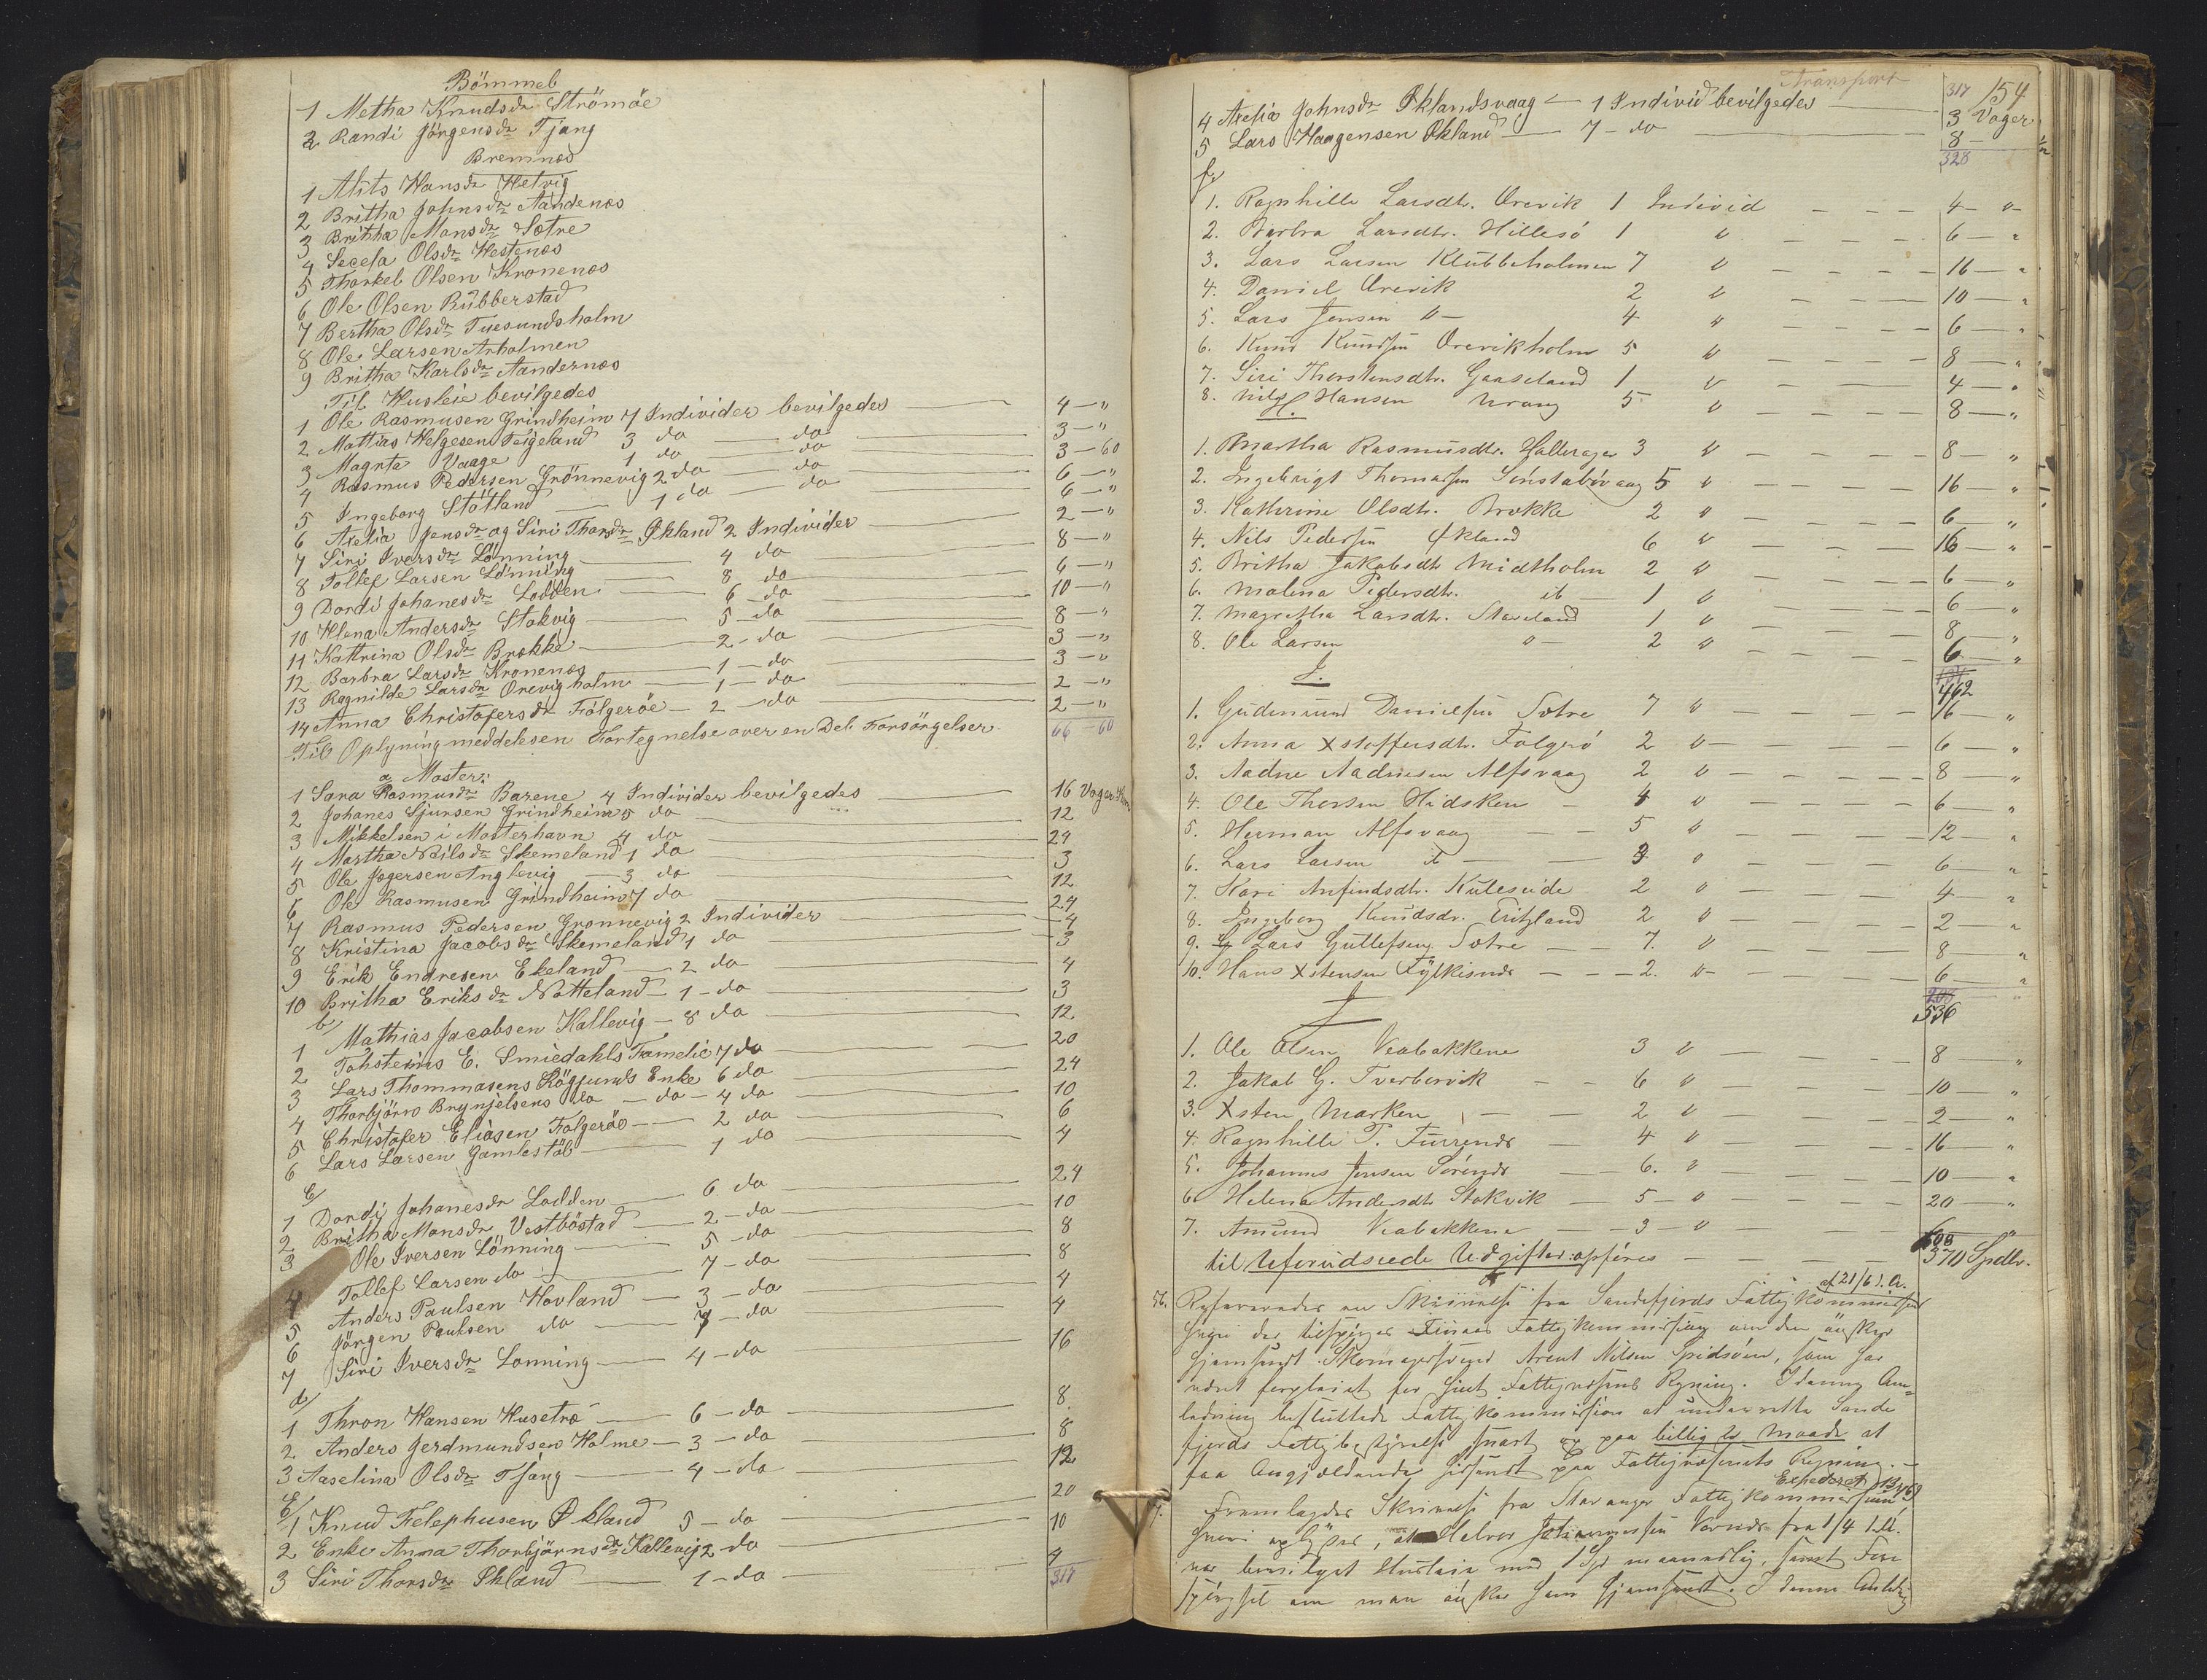 Bömmel
1 Metha Knudsdr Strömöe
2 Randi Jörgensdr Tjong
Bremnæs
1 Alits Hansdr Helvig
2 Britha Johnsdr Aandenæs
3 Britha Monsdr Sætre
4 Secela Olsdr Hestenæs
5 Thorkel Olsen Kronenæs
6 Ole Olsen Rübberstad
7 Bertha Olsdr Tuesundsholm
8 Ole Larsen Arholmen
9 Britha Karlsdr Aandernæs
Til Husleie bevilgedes
1 Ole Rasmusen Grindheim 7 Individer bevilgedes — 4 — "
2 Mattias Helgesen Teigeland 3 do — do — 3 — "
3 Magnta Vaage 1 do — do — 3 — 60
4 Rasmus Pedersen Grönnevig 2 do — do — 6 — "
5 Ingeborg Stötland — 1 do — do — 6 — "
6 Axelia Jensdr og Siri Thorsdr Økland 2 Individer — 2 — "
7 Siri Iversdr Lönning — 4 do — 8 — "
8 Tollef Larsen Lönning — 8 do — 6 — "
9 Dordi Johanesdr Lodden — 6 do — 10 — "
10 Hlena Andersdr Stokvig — 5 do — 8 — "
11 Kattrina Olsdr Brokke — 2 do — 3 — "
12 Barbra Larsdr Kronenæs — 1 — do — 3 — "
13 Ragnilde Larsdr Orevigholm — 1 — do — 2 — "
14 Anna Christofersdr Folgeröe — 2 — do — 2 — "
Til Oplysning meddelesen Fortegnelse over en Del Forsörgelser 66 — 60
a Moster:
1 Sara Rasmusdr Barene 4 Individer bevilgedes — 16 Voger Korn
2 Johanes Sjursen Grindheim 5 do — 12
3 Mikkelsen i Mosterhavn 4 do — 24
4 Martha Nilsdr Skemeland 1 do — 3
5 Ole Jogersen Anglevig — 3 do — 12
6 Ole Rasmusen Grindheim 7 do — 24
7 Rasmus Pedersen Gronnevig 2 Individer — 4
8 Kristina Jacobsdr Skemeland 1 do — 3
9 Erik Endresen Ekeland — 2 do — 4
10 Britha Eriksdr Notteland — 1 — do — 3
b/
1 Mathias Jacobsen Kallevig — 8 do — 12
2 Tohsteins E. Smiedahls Famelie 7 do — 20
3 Lars Thommasens Rögsunds Enke 6 do — 24
4 Thorbjörn Brynjelsens do — do — 4 do — 10
5 Christofer Eliasen Folgeröe — 2 do — 6
6 Lars Larsen Gamlestöl — 1 do — 4
c/
1 Dordij Johanesdr Lodden — 6 do — 24
2 Britha Monsdr Vestböstad — 2 — do — 10
3 Ole Iversen Lönning — 5 — do — 8
4 Tollef Larsen do — 7 — do — 8
5 Anders Paulsen Hovland — 3 — do — 4
6 Jörgen Paulsen do — 7 — do — 4
7 Siri Iversdr Lonning — 4 — do — 16
d/
1 Thron Hansen Husetrö — 6 — do — 8
2 Anders Gerdmundsen Holme — 3 — do — 8
3 Aaselina Olsdr Tjöng — 4 — do — 12
e/
1 Knud Telephusen Økland 5 — do — 20
2 Enke Anna Thorbjörnsdr Kallevig 2 do — 10
3 Siri Thorsdr Økland — 1 — do — 4
317
154
Transport 317
4 Axelia Johnsdr Øklandsvaag — 1 Individ bevilgedes — 3 Voger
5 Lars Haagensen Økland — 7 — do — 8 —
328
f/
1. Ragnhille Larsdtr. Orevik 1 Individ — 4 — "
2. Barbra Larsdtr. Hillesö 1 " — 6 — "
3. Lars Larsen Klubbeholmen 7 " — 16 — "
4. Daniel Orevik 2 " — 10 — "
5. Lars Jensen " — 4 " — 6 — "
6. Knud Knudsen Orevikholm 5 " — 8 — "
7. Siri Thorstensdtr. Gaaseland 1 " — 4 — "
8. Nils Hansen Urang 5 " — 8 — "
H.
1. Martha Rasmusdtr. Hallerager 3 " — 8 — "
2. Ingebrigt Thomassen Sönstabövaag 5 " — 16 — "
3. Kathrine Olsdtr. Brokke 2 " — 6 — "
4. Nils Pedersen Økland 6 " — 16 — "
5. Britha Jakobsdtr Midtholm 2 " — 6 — "
6. Malena Pedersdtr. it — 1 " — 6 — "
7. Magretha Larsdtr. Staveland 1 " — 8 "
8. Ole Larsen " — 2 " — 6 — "
462
J.
1. Gudmund Danielsen Sætre 7 " — 16 — "
2. Anna Xstoffersdtr. Folgerö 2 " — 6 — "
3. Aadne Aadnesen Alfsvaag 2 " — 8 — "
4. Ole Thorsen Hidsken — 4 " — 6 — "
5. Herman Alfsvaag — 5 " — 12 — "
6. Lars Larsen it — 3 " — 6 — "
7. Kari Anfindsdtr. Kuleseide 2 " — 4 — "
8. Ingeborg Knudsdr. Eritzland 2 " — 2 — "
9. Lars Gutlefsen Sætre — 7. " — 8 — "
10. Hans Xstensen Fylkesnes — 2. " — 6 — "
536
J
1. Ole Olsen Veabakkene 3 " — 8 — "
2. Jakob G. Tverborvik — 6 " — 10 — "
3. Xsten Marken — 2 " — 2 — "
4. Ragnhille P. Furrends — 4 " — 16 — "
5. Johannes Jensen Sörends — 6. " — 10 — "
6. Helena Andersdtr Stokvik — 5 — " — 20 — "
7. Amund Veabakkene — 3 — " — 6 — "
608
til Uforudseede Udgifter: opføres — 370 Spdlr.
af 21/6 d. A.
Refereredes en Skrivelse fra Sandefjords Fattigkommission
hvori der tilspørges Finaas Fattigkommission om den ønsker
hjemsendt Skomagersvend Arent Nilsen Spidsöen, som har
været forpleiet for hint Fattigvæsens Regning. I denne An-
ledning besluttede Fattigkommission at underrette Sande
fjords Fattigbestyrelse snart og paa billigste Maade at
faa Angjældende hidsendt paa Fattigvæsenets Regning. —
Expederet
Fremlagdes Skrivelse fra Stavanger Fattigkommission
hvori oplyses, at Halvor Johannessen fra 1/4 d. A.
var bevilget Husleie med 1 Spd maanedlig, samt Fore
spörgsel om man ønsker ham hjemsendt. I denne Anledning